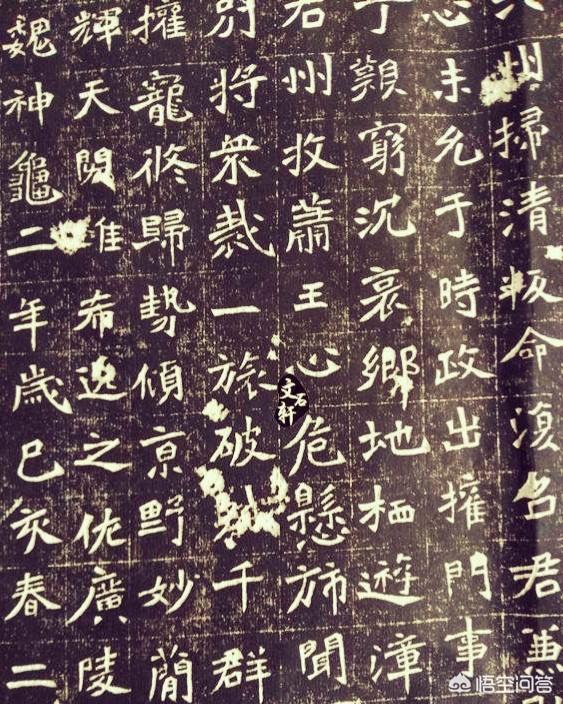 州掃清叛命澓名君兼
未允于時政出擁門事
于顥窮沉哀鄉地栖遊漳
君州牧蕭王心危懸旆聞
別將衆裁一旅破千群
擢寵修歸勢傾京野妙簡
輝天闕希逸之优廣陵
魏神龜二年歲巳亥春二
文石軒
悟空问答